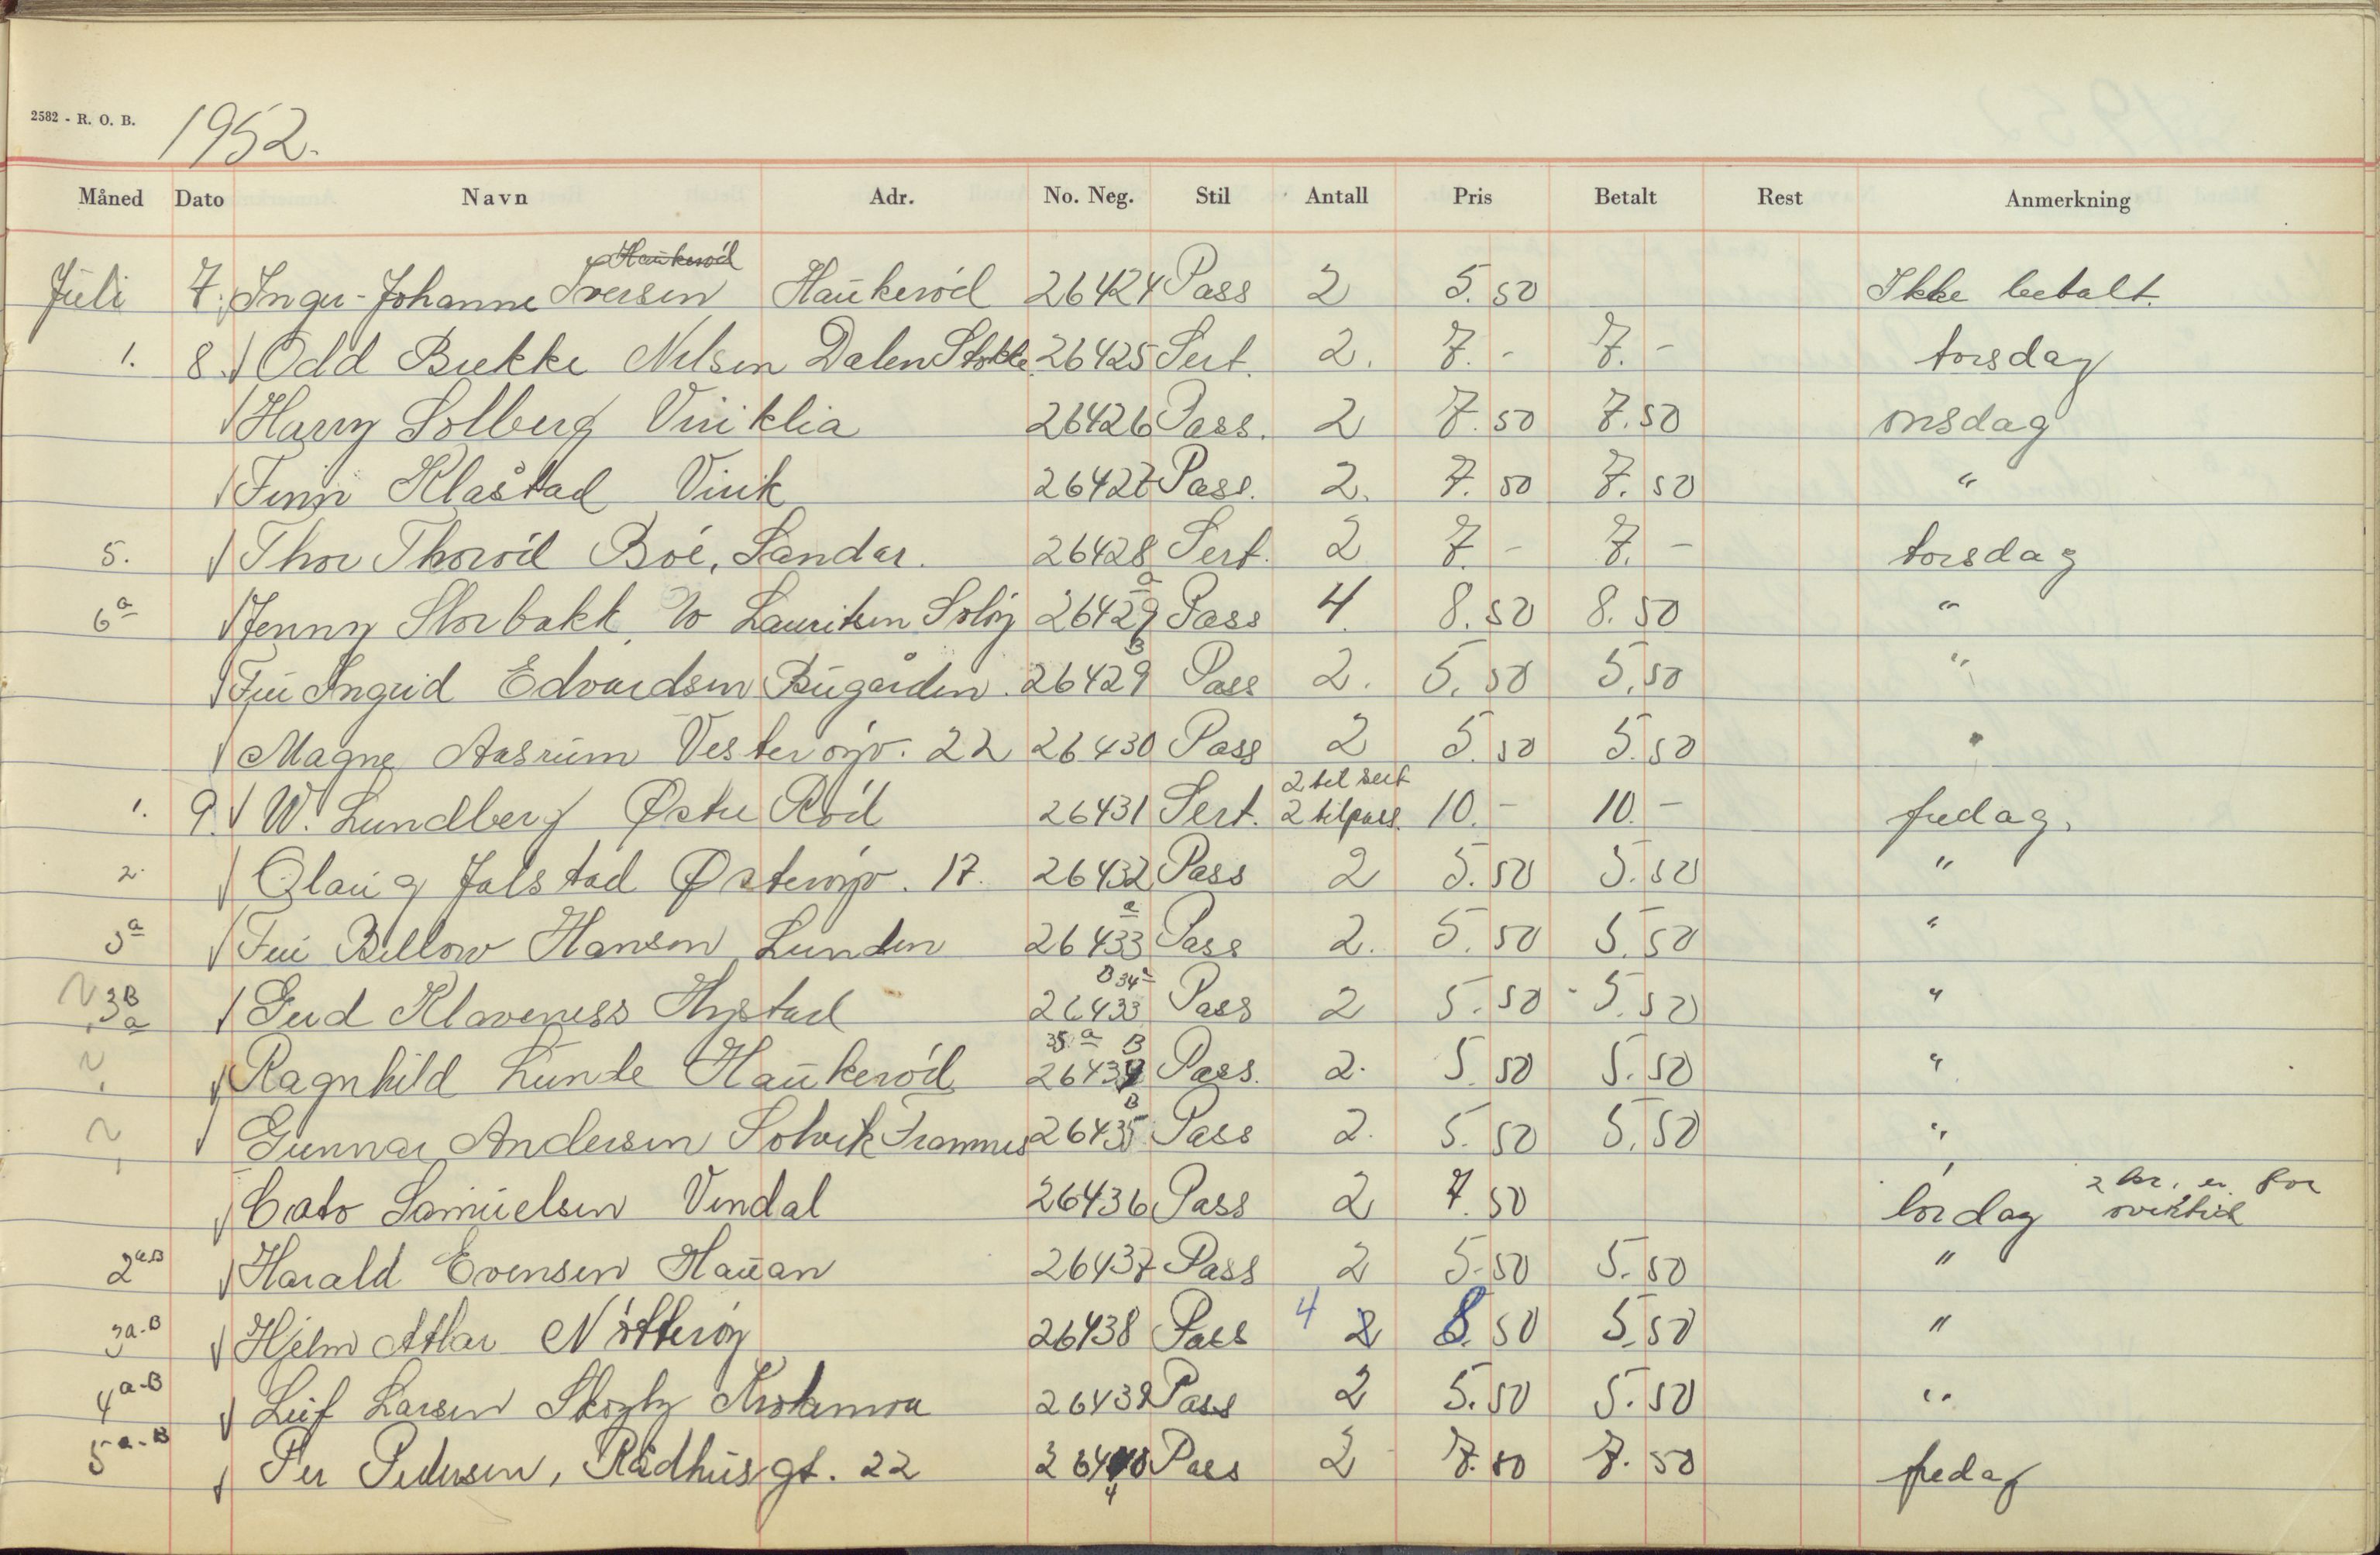 2582 - R. O. B.
1952.
Måned Dato Navn Adr. No. Neg. Stil Antall Pris Betalt Rest Anmerkning
Haukeröd
Juli 7. Inger-Johanne Iversen Haukeröd 26424 Pass 2 5.50 Ikke betalt.
1. 8. Odd Brekke Nilsen Dalen Stokke 26425 Sert. 2. 7.- 7.- torsdag
Harry Solberg Viriklia 26426 Pass. 2 7.50 7.50 onsdag
Finn Klåstad Virik 26427 Pass. 2. 7.50 7.50 "
5. Thor Thoröd Böe, Sandar. 26428 Sert. 2 7.- 7.- torsdag
6a Jenny Storbakk, Lauritsen Soløy 26429 a Pass 4 8.50 8.50 "
Fru Ingrid Edvardsen Bugården. 26429 B Pass 2. 5.50 5.50 "
Magne Aasrum Vesterøyv. 22 26430 Pass 2 5.50 5.50 "
1. 9. W. Lundberg Østre Röd 26431 Sert. 2 til sert 2 til pass. 10.- 10.- fredag.
2. Olaug Jalstad Østerøyv. 17. 26432 Pass 2 5.50 5.50 "
3a Fru Bellow Hansen Lunden 26433 a Pass 2. 5.50 5.50 "
3B a Gerd Klaveness Hystad 26433 B 34a Pass 2 5.50 5.50 "
Ragnhild Lunde Haukeröd 35 a B 26434 Pass. 2. 5.50 5.50 "
Gunnar Andersen Solvik Framnes 26435 B Pass 2. 5.50 5.50 "
Cato Samuelsen Vindal 26436 Pass 2 7.50 lördag 2 kr. er for
2a.B Harald Evensen Hauan 26437 Pass 2 5.50 5.50 "
3a-B Hjelm Atlar Nötteröy 26438 Pass 4 2 8.50 5.50 "
4a-B Leif Larsen Skogly Krokemoa 26439 Pass 2 5.50 5.50 "
5a-B Per Pedersen, Rådhusgt. 22 26440 Pass 2 7.50 7.50 fredag
4